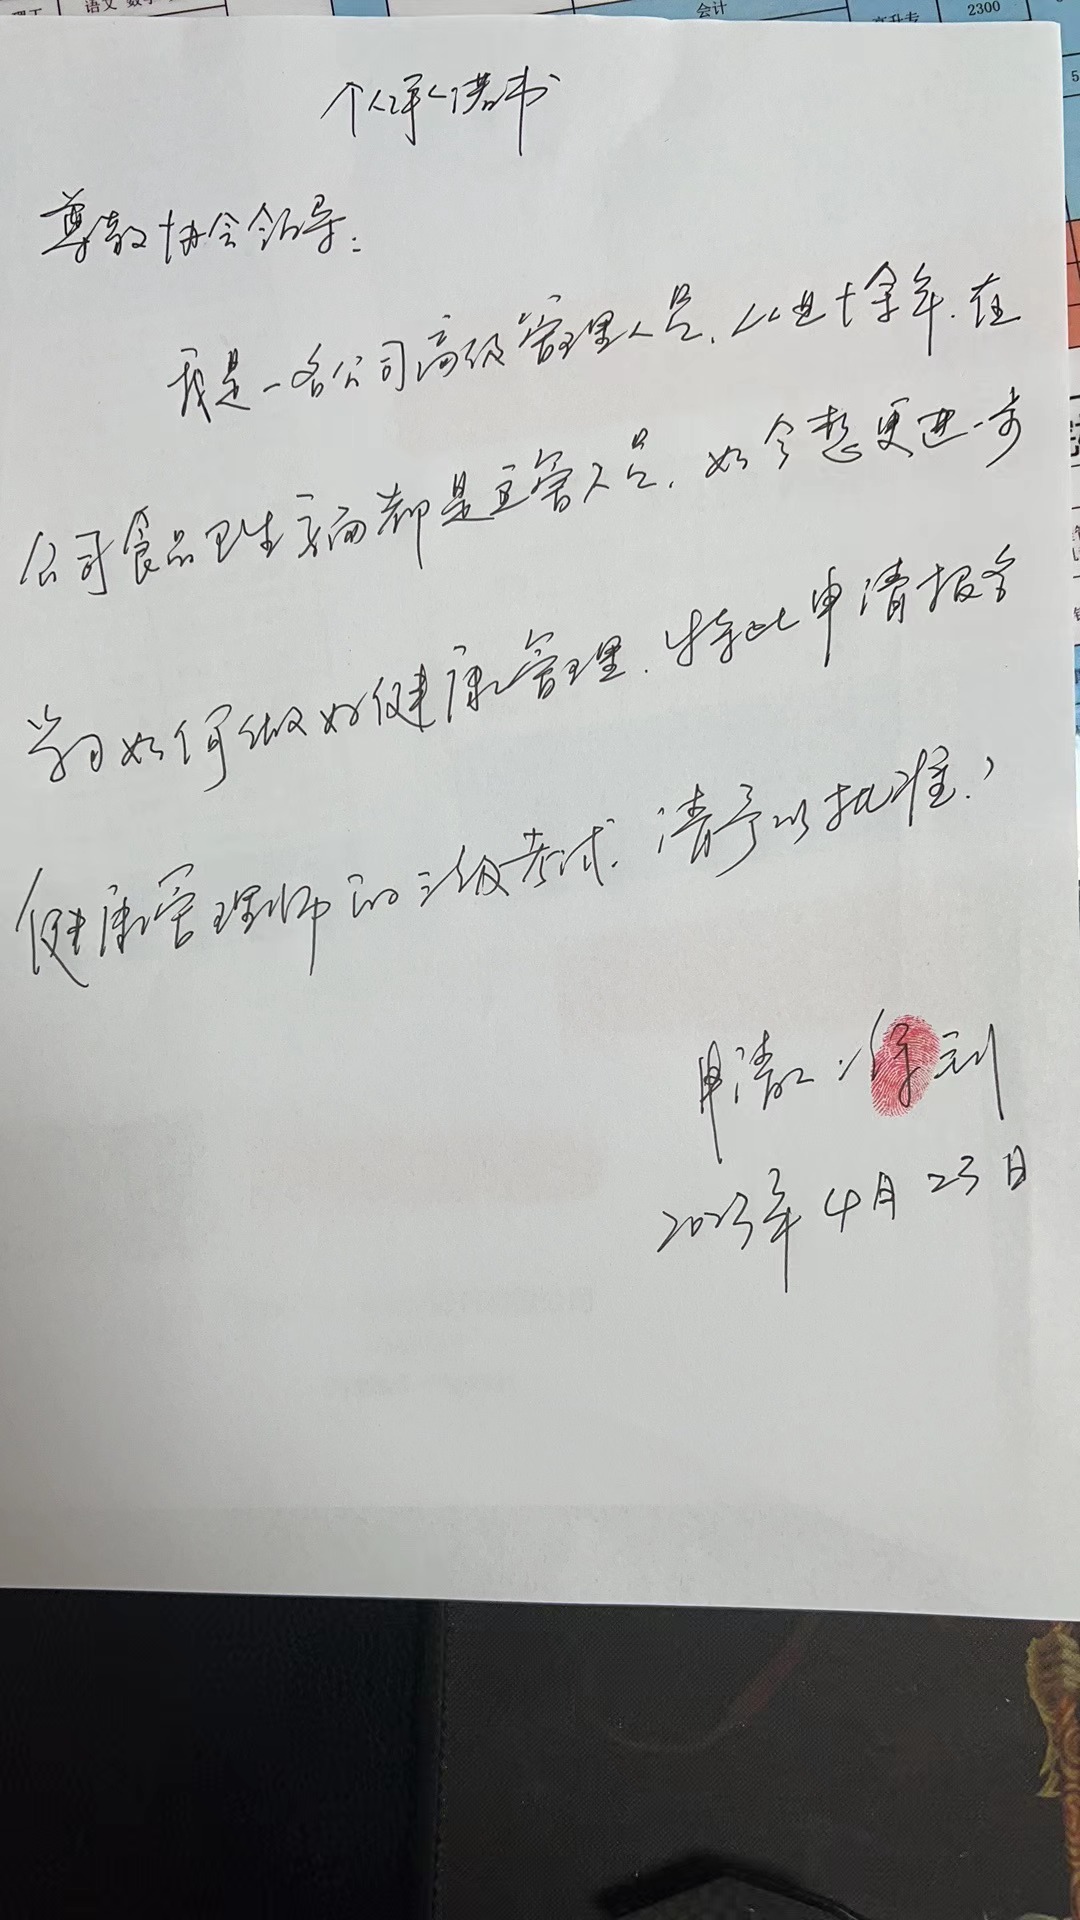 语文 数学
会计
高升专
2300
个人承诺书
尊敬协会领导:
我是一名公司高级管理人员,从业十余年,在
公司食品卫生方面都是主管人员,如今想更进一步
学习如何做好健康管理,特此申请报名
健康管理师的三级考试,请予以批准!
申请人:
2023年4月23日